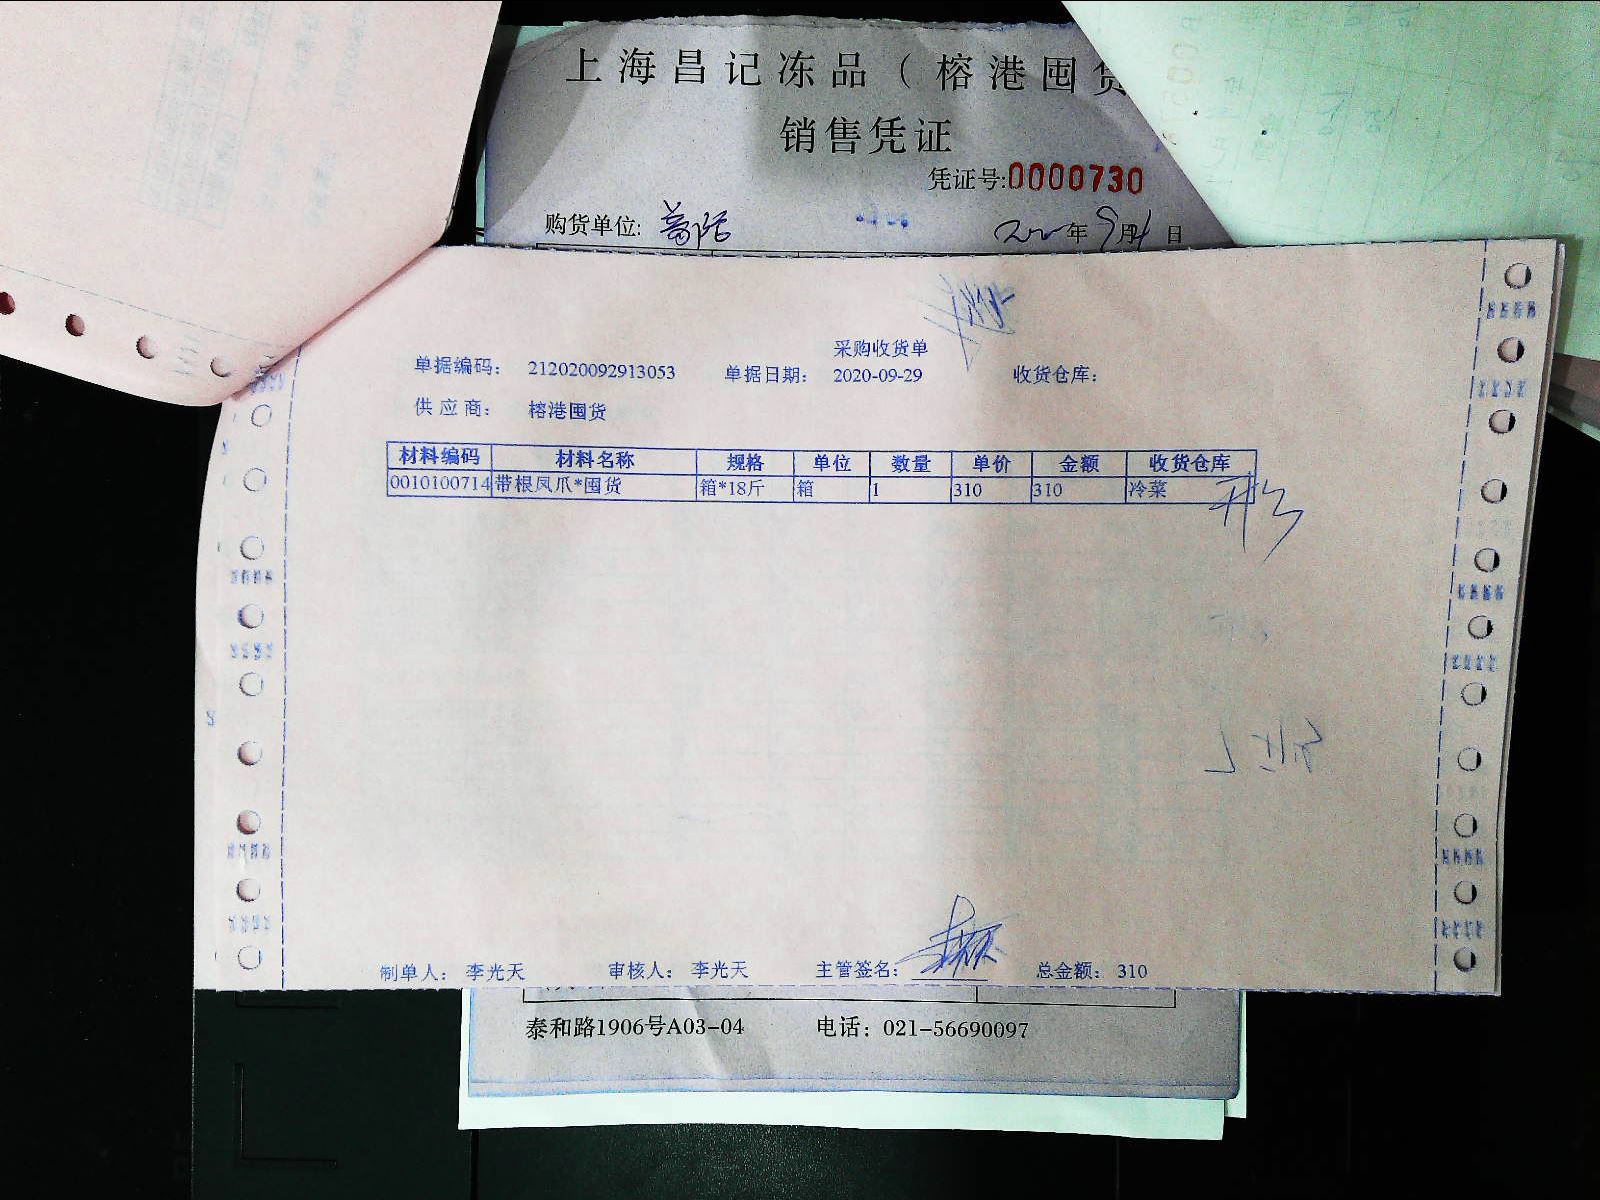 上海昌记冻品（榕港囤货
销售凭证
凭证号:0000730
购货单位: 年 9月 日
采购收货单
单据编码： 212020092913053 单据日期： 2020-09-29 收货仓库：
供应商： 榕港囤货
材料编码 材料名称 规格 单位 数量 单价 金额 收货仓库
0010100714 带根凤爪*囤货 箱*18斤 箱 1 310 310 冷菜
制单人： 李光天 审核人： 李光天 主管签名： 总金额： 310
泰和路1906号A03-04 电话：021-56690097